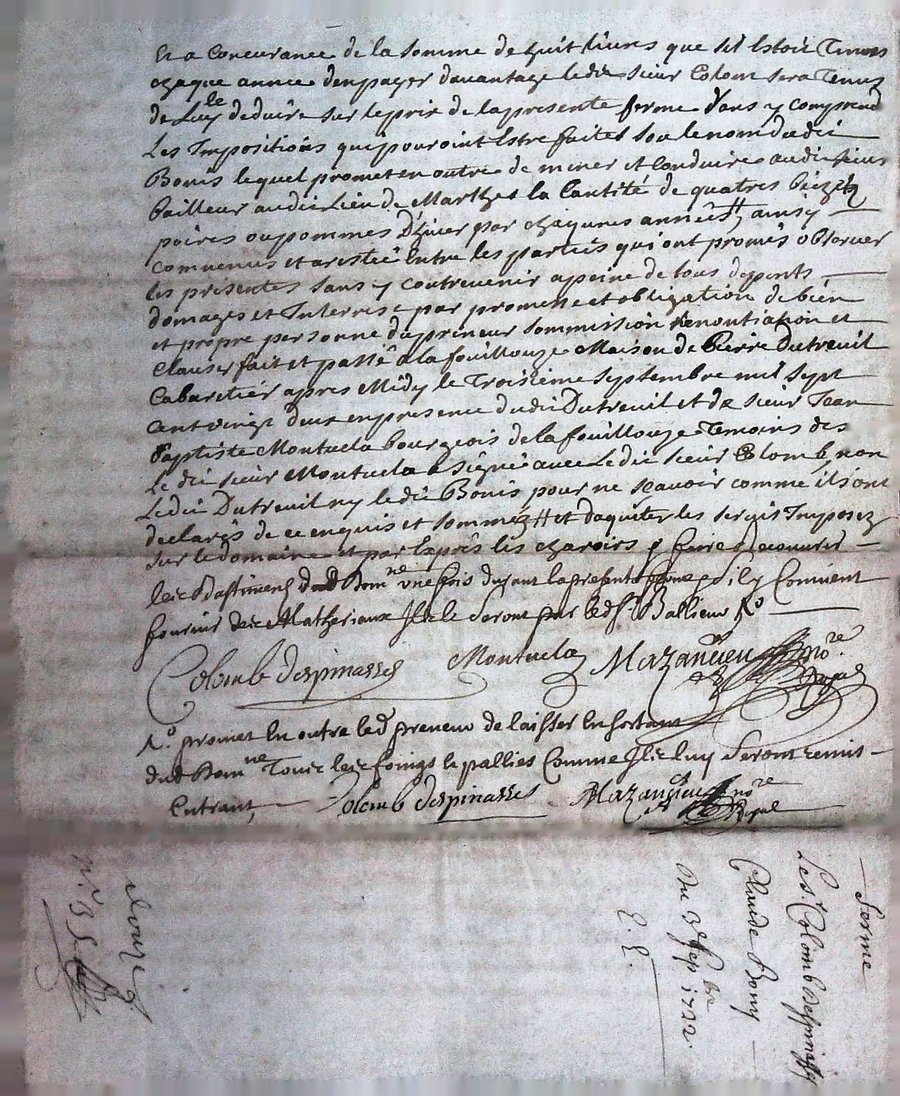 Et a Concurance de la Somme de huit livres que sil Estoit Tenus
chaque annee d'en payer davantage ledit sieur Colom sera Tenus
de Luy deduire sur le prix de la presente ferme sans y comprend
Les Impositions qui pouroint Estre faites sou le nom dudit
Bonis lequel promet en outre de mener et conduire audit sieur
bailleur audit Lieu de Marthes la Cantité de quatres
poires ou pommes D'hiver par chaqunes années, ainsy
convenus et arestée Entre les parties qui ont promis observer
les presentes sans y contrevenir a peine de tous depents
domages et Interest par promesse et obligation de bien
et propre personne du preneur sommission Renontiation et
Clauses fait et passé a la fouillouze Maison de Pierre Dutreuil
Cabaretier apres Midy le Troisieme Septembre mil sept
cent vingt deux en presence dudit Dutreuil et de sieur Jean
Baptiste Montuela bourgeois de la fouillouze Temoins
Le dit sieur Montuela a signé avec Le dit sieur Colomb, non
Ledit Dutreuil ny le dit Bonis pour ne scavoir comme ils ont
declarés de ce enquis et sommez et daquiter les servis Imposez
sur le domaine et par Expres les charois p faire Recouvrir
les Bastiments dud Domne une fois durant la presente ferme s'il y Convient
fournir des Matheriaux Ils le Seront par led sr Ballieur
Colomb Despinasses Montuela Mazancieu nore Royal
promet En outre led preneur de laisser En sortant
dud Domne Tous les foings et pallies Comme Ils luy Seront remis
Entrant, Colomb Despinasses Mazancieu nore
Royal
ferme
Le Sr Colomb despinasses
Claude Bony
Du 3e Sepbre 1722.
E. E.
n° 35